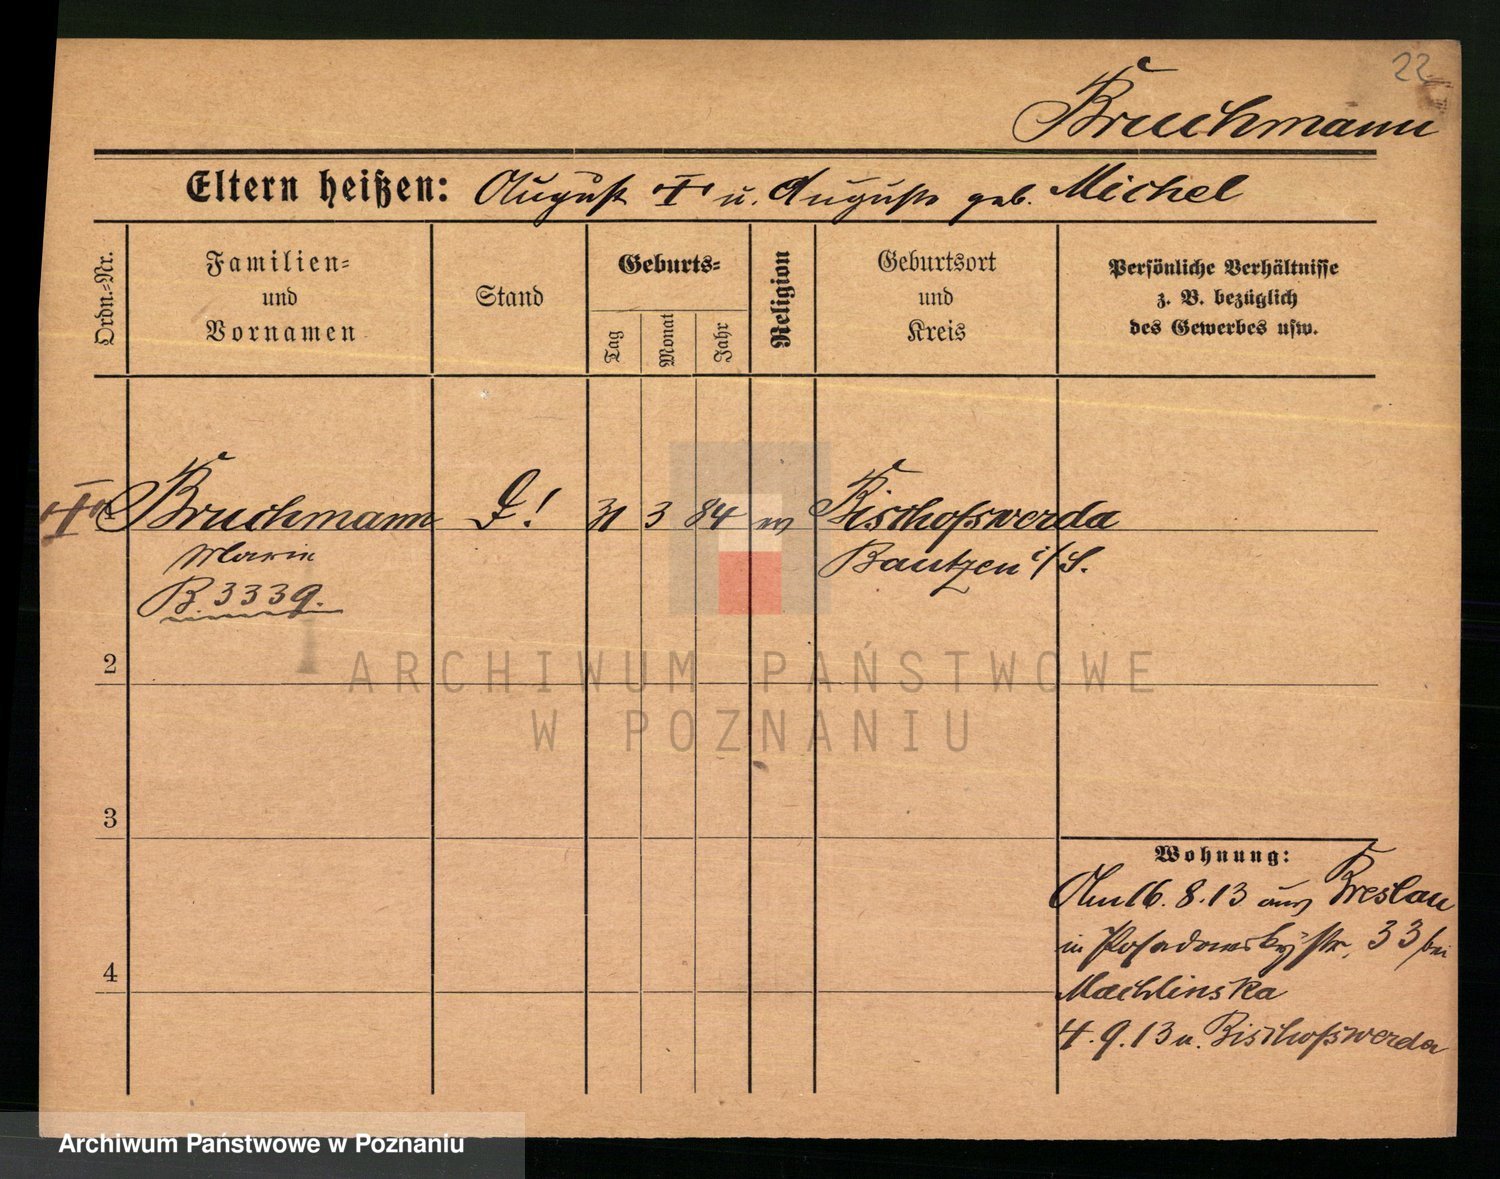 22
Bruchmann
Eltern heißen: August u. Auguste geb. Michel
Ordn.-Nr.
Familien-
und
Vornamen
Stand
Geburts-
Tag
Monat
Jahr
Religion
Geburtsort
und
Kreis
Persönliche Verhältnisse
z. B. bezüglich
des Gewerbes usw.
Bruchmann
31 3 84
Bischofswerda
Marie
Bautzen i/S.
B. 3339.
2
3
4
Wohnung:
Am 16. 8. 13 aus Breslau
in Posadowskystr. 33 bei
Machlinska
4. 9. 13 n. Bischofswerda
ARCHIWUM PAŃSTWOWE
W POZNANIU
Archiwum Państwowe w Poznaniu